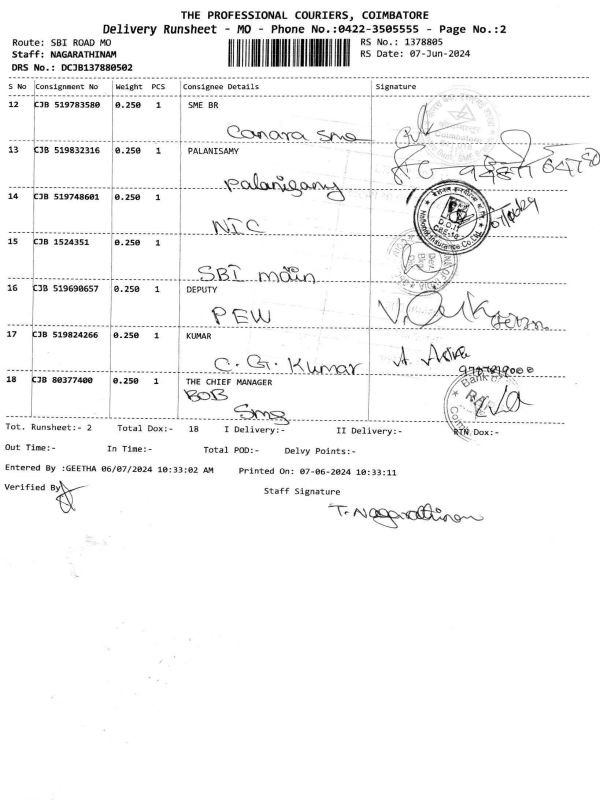 THE PROFESSIONAL COURIERS, COIMBATORE
Delivery Runsheet - MO - Phone No.:0422-3505555 - Page No.:2
Route: SBI ROAD MO
RS No.: 1378805
Staff: NAGARATHINAM
RS Date: 07-Jun-2024
DRS No.: DCJB137880502
S No Consignment No Weight PCS Consignee Details Signature
12 CJB 519783580 0.250 1 SME BR
Canara sme
13 CJB 519832316 0.250 1 PALANISAMY
Palanisamy
14 CJB 519748601 0.250 1
NIC
15 CJB 1524351 0.250 1
SBI main
16 CJB 519690657 0.250 1 DEPUTY
PEW
17 CJB 519824266 0.250 1 KUMAR
C. G. Kumar
18 CJB 80377400 0.250 1 THE CHIEF MANAGER
BOB
Sme
Tot. Runsheet:- 2 Total Dox:- 18 I Delivery:- II Delivery:- RTN Dox:-
Out Time:- In Time:- Total POD:- Delvy Points:-
Entered By :GEETHA 06/07/2024 10:33:02 AM Printed On: 07-06-2024 10:33:11
Verified By
Staff Signature
T. Nagarathinam